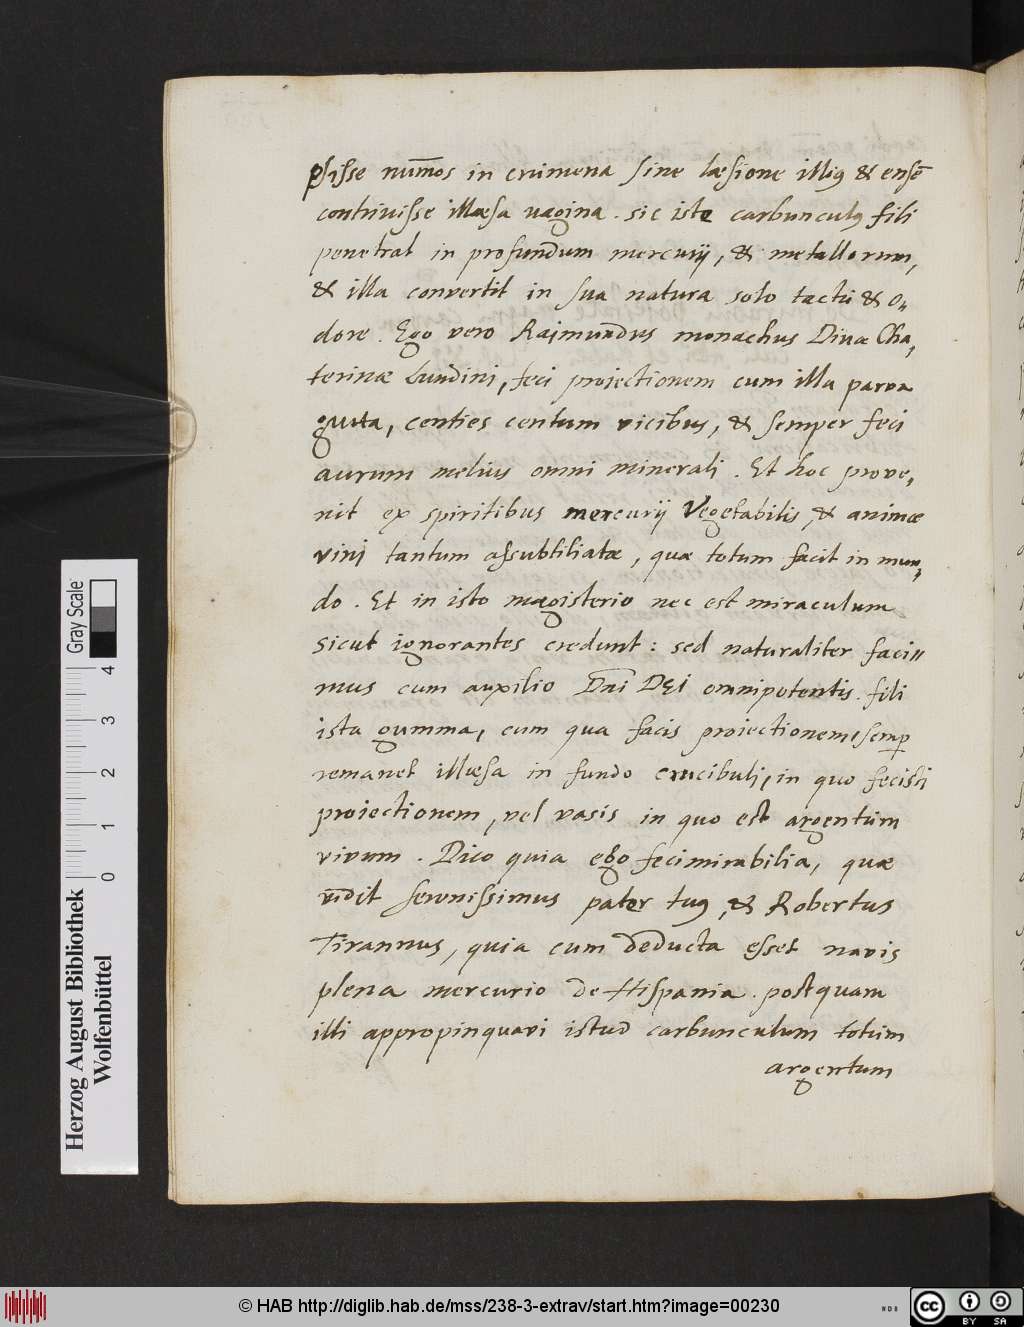 pſisse num̄os in crumena sine læsione illiꝰ & ensē
contrivisse illæsa vagina. sic iste carbunculꝰ fili
penetrat in profundum mercurij, & metallorum,
& illa convertit in sua natura solo tactu & o„
dore. Ego vero Raimundus monachus Divæ Cha,
terinæ Lundini, feci proiectionem cum illa parva
gutta, centies centum vicibus, & semper feci
aurum melius omni minerali. Et hoc prove,
nit ex spiritibus mercurij Vegetabilis, & animæ
vini tantum assubtiliatæ, quæ totum facit in mun,
do. Et in isto magisterio nec est miraculum
sicut ignorantes credunt: sed naturaliter faci„
mus cum auxilio Dn̄i DEI omnipotentis. fili
ista gumma, cum qua facis proiectionem, semp
remanet illæsa in fundo crucibuli, in quo fecisti
proiectionem, vel vasis in quo est argentum
vivum. Dico quia ego feci mirabilia, quæ
vidit serenissimus pater tuꝰ, & Robertus
Tirannus, quia cum deducta esset navis
plena mercurio de Hispania. postquam
illi appropinquavi istud carbunculum totum
argentum
Herzog August Bibliothek
Wolfenbüttel
0 1 2 3 4
Gray Scale
© HAB http://diglib.hab.de/mss/238-3-extrav/start.htm?image=00230
cc BY SA